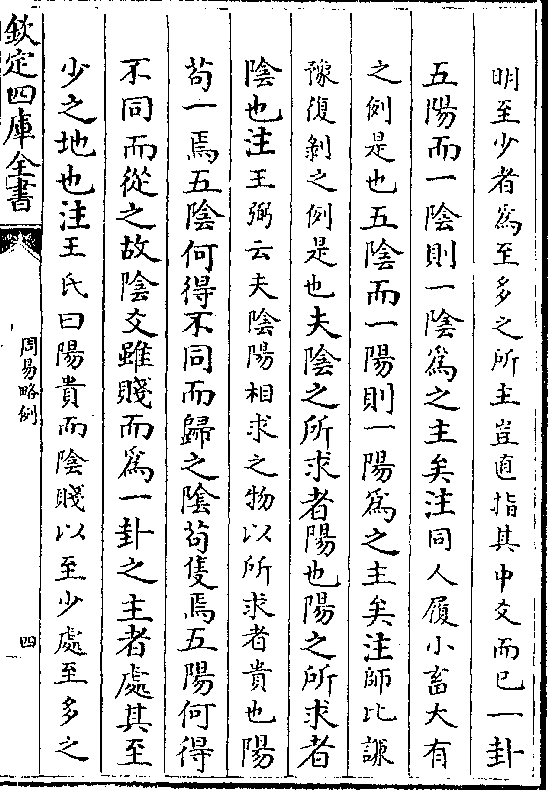 明至少者爲至多之所主豈直指其中爻而已一卦
五陽而一陰則一陰爲之主矣注同人履小畜大有
之例是也五陰而一陽則一陽爲之主矣注師比謙
豫復剝之例是也夫陰之所求者陽也陽之所求者
陰也注王弼云夫陰陽相求之物以所求者貴也陽
苟一焉五陰何得不同而歸之陰苟隻焉五陽何得
不同而從之故陰爻雖賤而爲一卦之主者處其至
少之地也注王氏曰陽貴而陰賤以至少處至多之
欽定四庫全書
周易略例
四